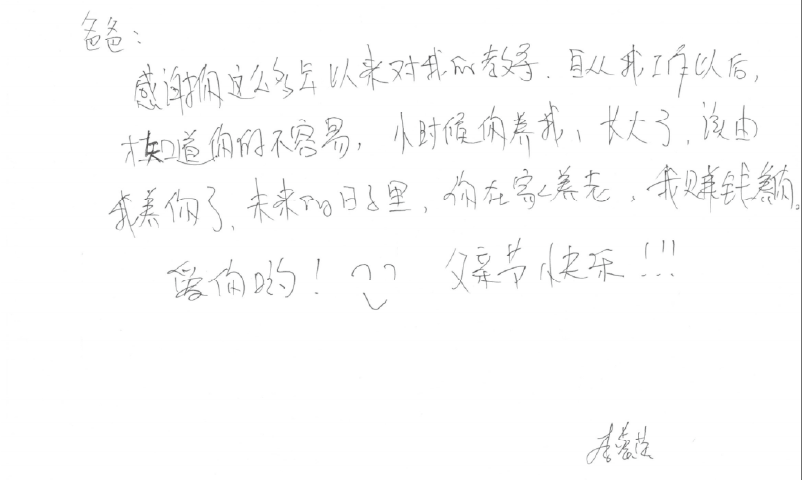 爸爸：
感谢你这么多年以来对我的教导．自从我工作以后，
才知道你的不容易，小时候你养我，长大了，该由
我养你了，未来的日子里，你在家养老，我赚钱养你。
爱你哟！ 父亲节快乐！！！